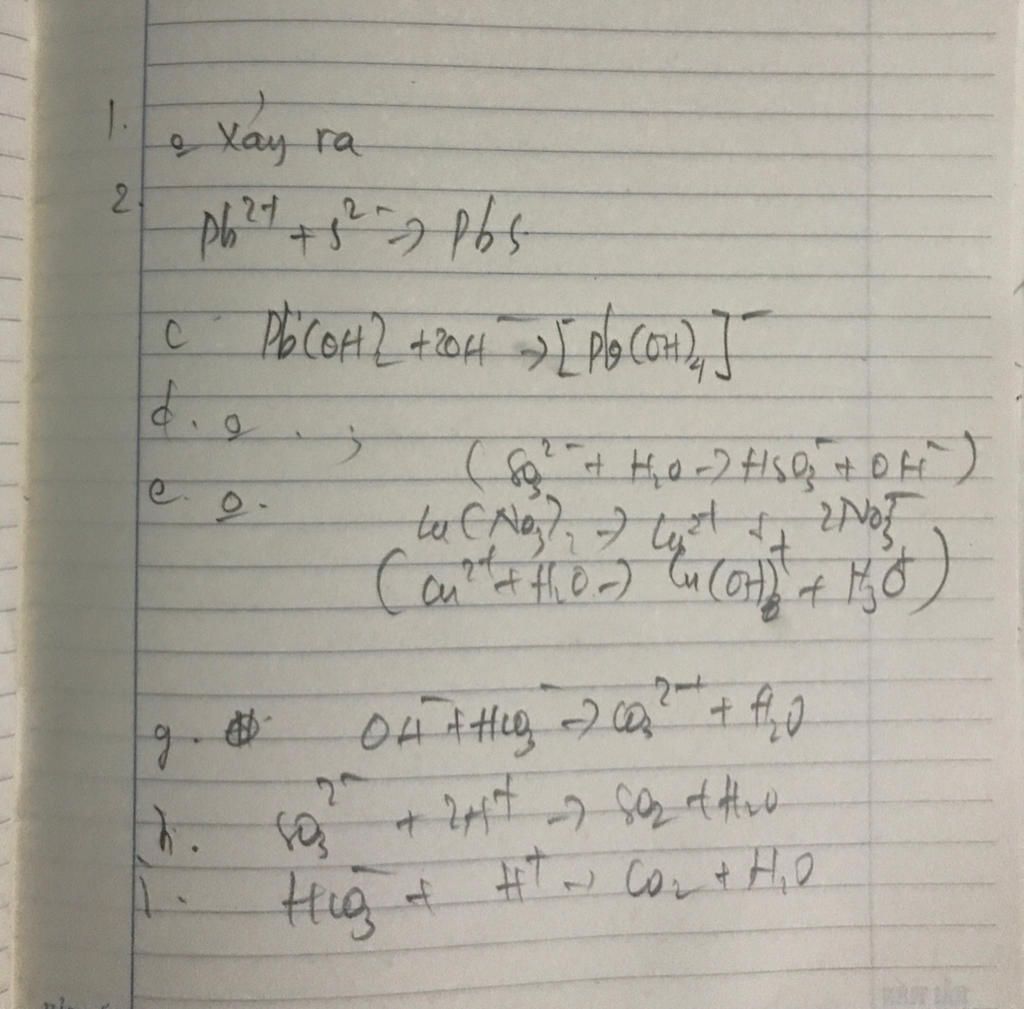 1. o Xảy ra
2. Pb²⁺ + S²⁻ → PbS
c Pb(OH)₂ + 2OH⁻ → [Pb(OH)₄]⁻
d. o . ;
(SO₃²⁻ + H₂O → HSO₃⁻ + OH⁻)
e. o.
Cu(NO₃)₂ → Cu²⁺ + 2NO₃⁻
(Cu²⁺ + H₂O → Cu(OH)⁺ + H₃O⁺)
g. OH⁻ + HCO₃⁻ → CO₃²⁻ + H₂O
h. SO₃²⁻ + 2H⁺ → SO₂ + H₂O
i. HCO₃⁻ + H⁺ → CO₂ + H₂O